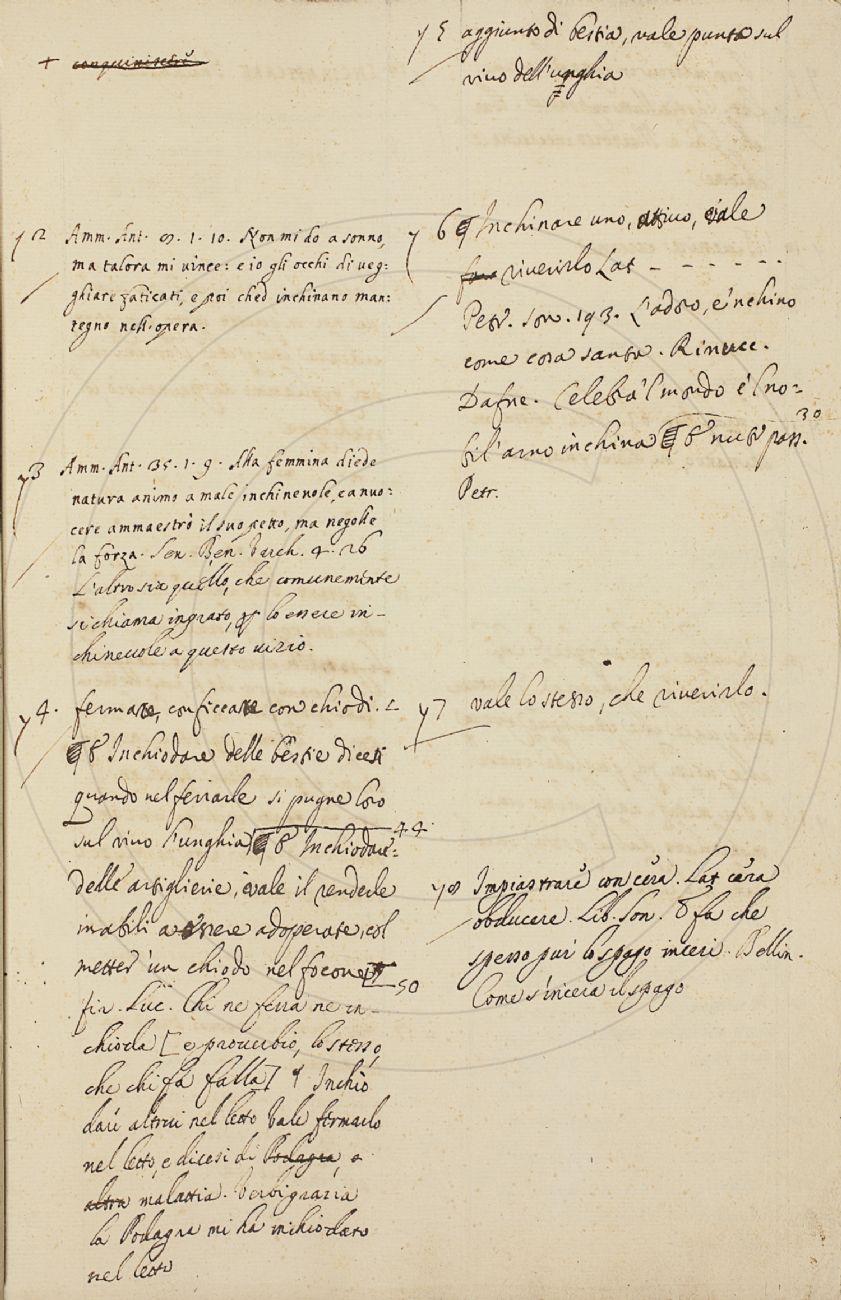 + conquiniscere
y 2 Amm. Ant. 9. 1. 10. Non mi do a sonno,
ma talora mi vince: e io gli occhi di veg-
ghiare faticati, e poi che d'inchinano man:
tegno nell'opera.
y 3 Amm. Ant. 35. 1. 9. Alla femmina diede
natura animo a male inchinevole, e a nuo:
cere ammaestrò il suo petto, ma negolle
la forza. Sen. Ben. Varch. 4. 26
L'altro si è quello, che comunemente
si chiama ingrato, lo essere in-
chinevole a questo vizio.
y 4. fermare, conficcare con chiodi.
§ Inchiodare delle bestie dicesi
quando nel ferrarle si pugne loro
sul vivo l'unghia § Inchiodare 44
dell'artiglierie, vale il renderle
inabili a essere adoperate, col
metter un chiodo nel focone 50
fir. Luc. Chi ne ferra ne in-
chioda [e proverbio, lo stesso,
che chi fa falla] Inchio
dare altrui nel letto Vale fermarlo
nel letto, e dicesi di Podagra, o
altra malattia. Verbigrazia
la Podagra mi ha inchiodato
nel letto
y 5 aggiunto di bestia, vale punta sul
vivo dell'unghia
y 6 § Inchinare uno, attivo, vale
riverirlo Lat - - - - - -
Petr. son. 193. L'adoro, e 'nchino
come cosa santa. Rinucc.
Dafne. Celebra 'l mondo e 'l no:
bil'arno inchina § neutr pass. 30
Petr.
y 7 vale lo stesso, che riverirlo.
y 8 Impiastrare con cera. Lat cera
obducere. Lib. Son. fa che
spesso pur lo spago inceri. Bellin.
Come s'incera il spago